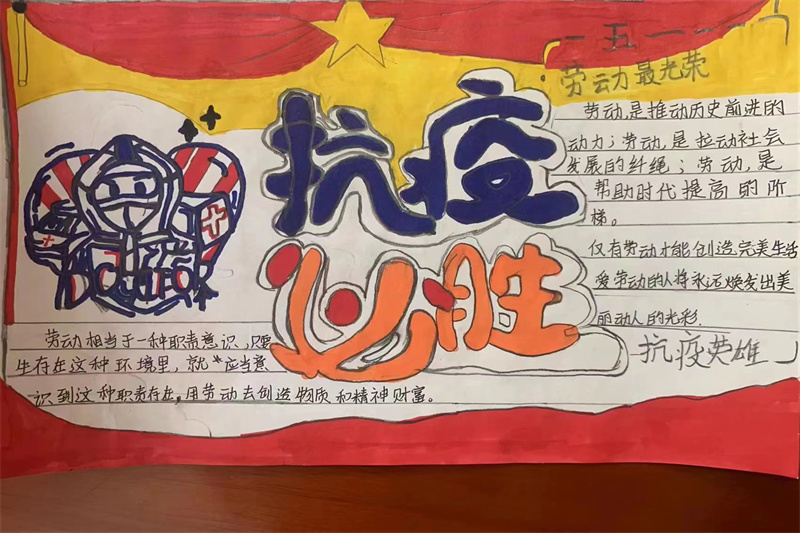 抗疫
必胜
五一
劳动力最光荣
劳动,是推动历史前进的
动力;劳动,是拉动社会
发展的纤绳;劳动,是
帮助时代提高的阶
梯。
仅有劳动才能创造完美生活
爱劳动的人将永远焕发出美
丽动人的光彩.
抗疫英雄
劳动相当于一种职责意识,只要
生存在这种环境里,就 应当意
识到这种职责存在,用劳动去创造物质和精神财富。